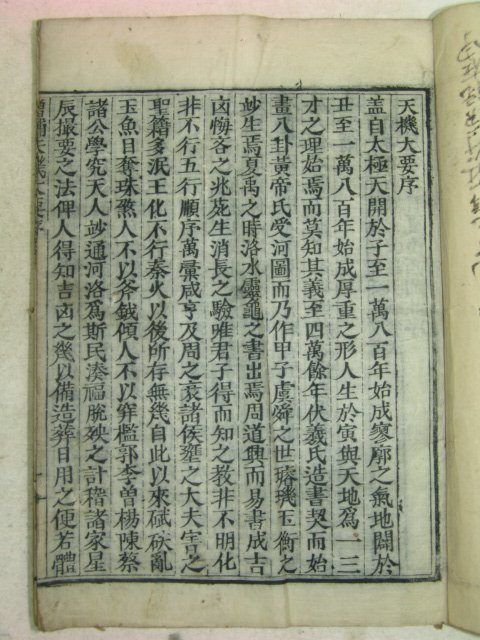 天機大要序
盖自太極天開於子至一萬八百年始成寥廓之氣地闢於
丑至一萬八百年始成厚重之形人生於寅與天地爲一三
才之理始焉而莫知其義至四萬餘年伏羲氏造書契而始
畫八卦黃帝氏受河圖而乃作甲子虞舜之世璿璣玉衡之
妙生焉夏禹之時洛水靈龜之書出焉周道興而易書成吉
凶悔吝之兆㫄生消長之驗唯君子得而知之敎非不明化
非不行五行順序萬彙咸亨及周之衰諸侯壅之大夫害之
聖籍多泯王化不行秦火以後所存無幾自此以來碔砆亂
玉魚目奪珠煞人不以斧鉞傾人不以穽檻郭李曾楊陳蔡
諸公學究天人妙通河洛爲斯民湊福脫殃之計稽諸家星
辰撮要之法俾人得知吉凶之幾以備造葬日用之便若體
增補天機大要序